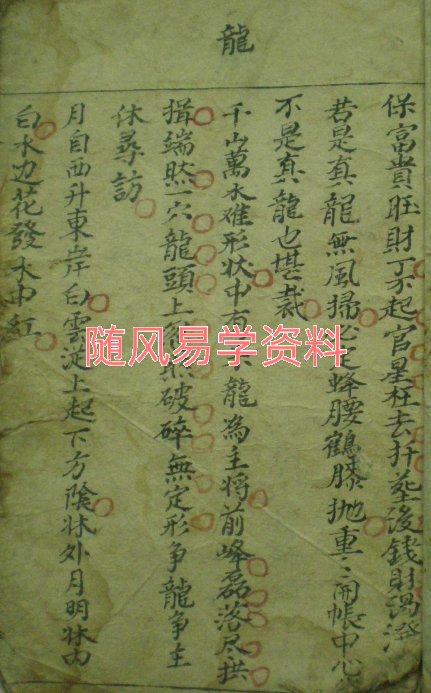 龍
保富貴旺財丁不起官星枉去扦塟後錢財
若是真龍無風掃 蜂腰鶴膝拋重〻開帳中心
不是真龍也堪裁
千山萬水难形状中 龍為主将前峰磊落尽拱
揖端然一穴龍頭上 破碎無定形争龍争主
休尋訪
月自西升東岸白雲 上起下方陰 外月明 内
白水边花發水中紅
随风易学资料